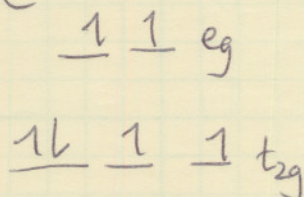 1 1 eg
1l 1 1 t2g